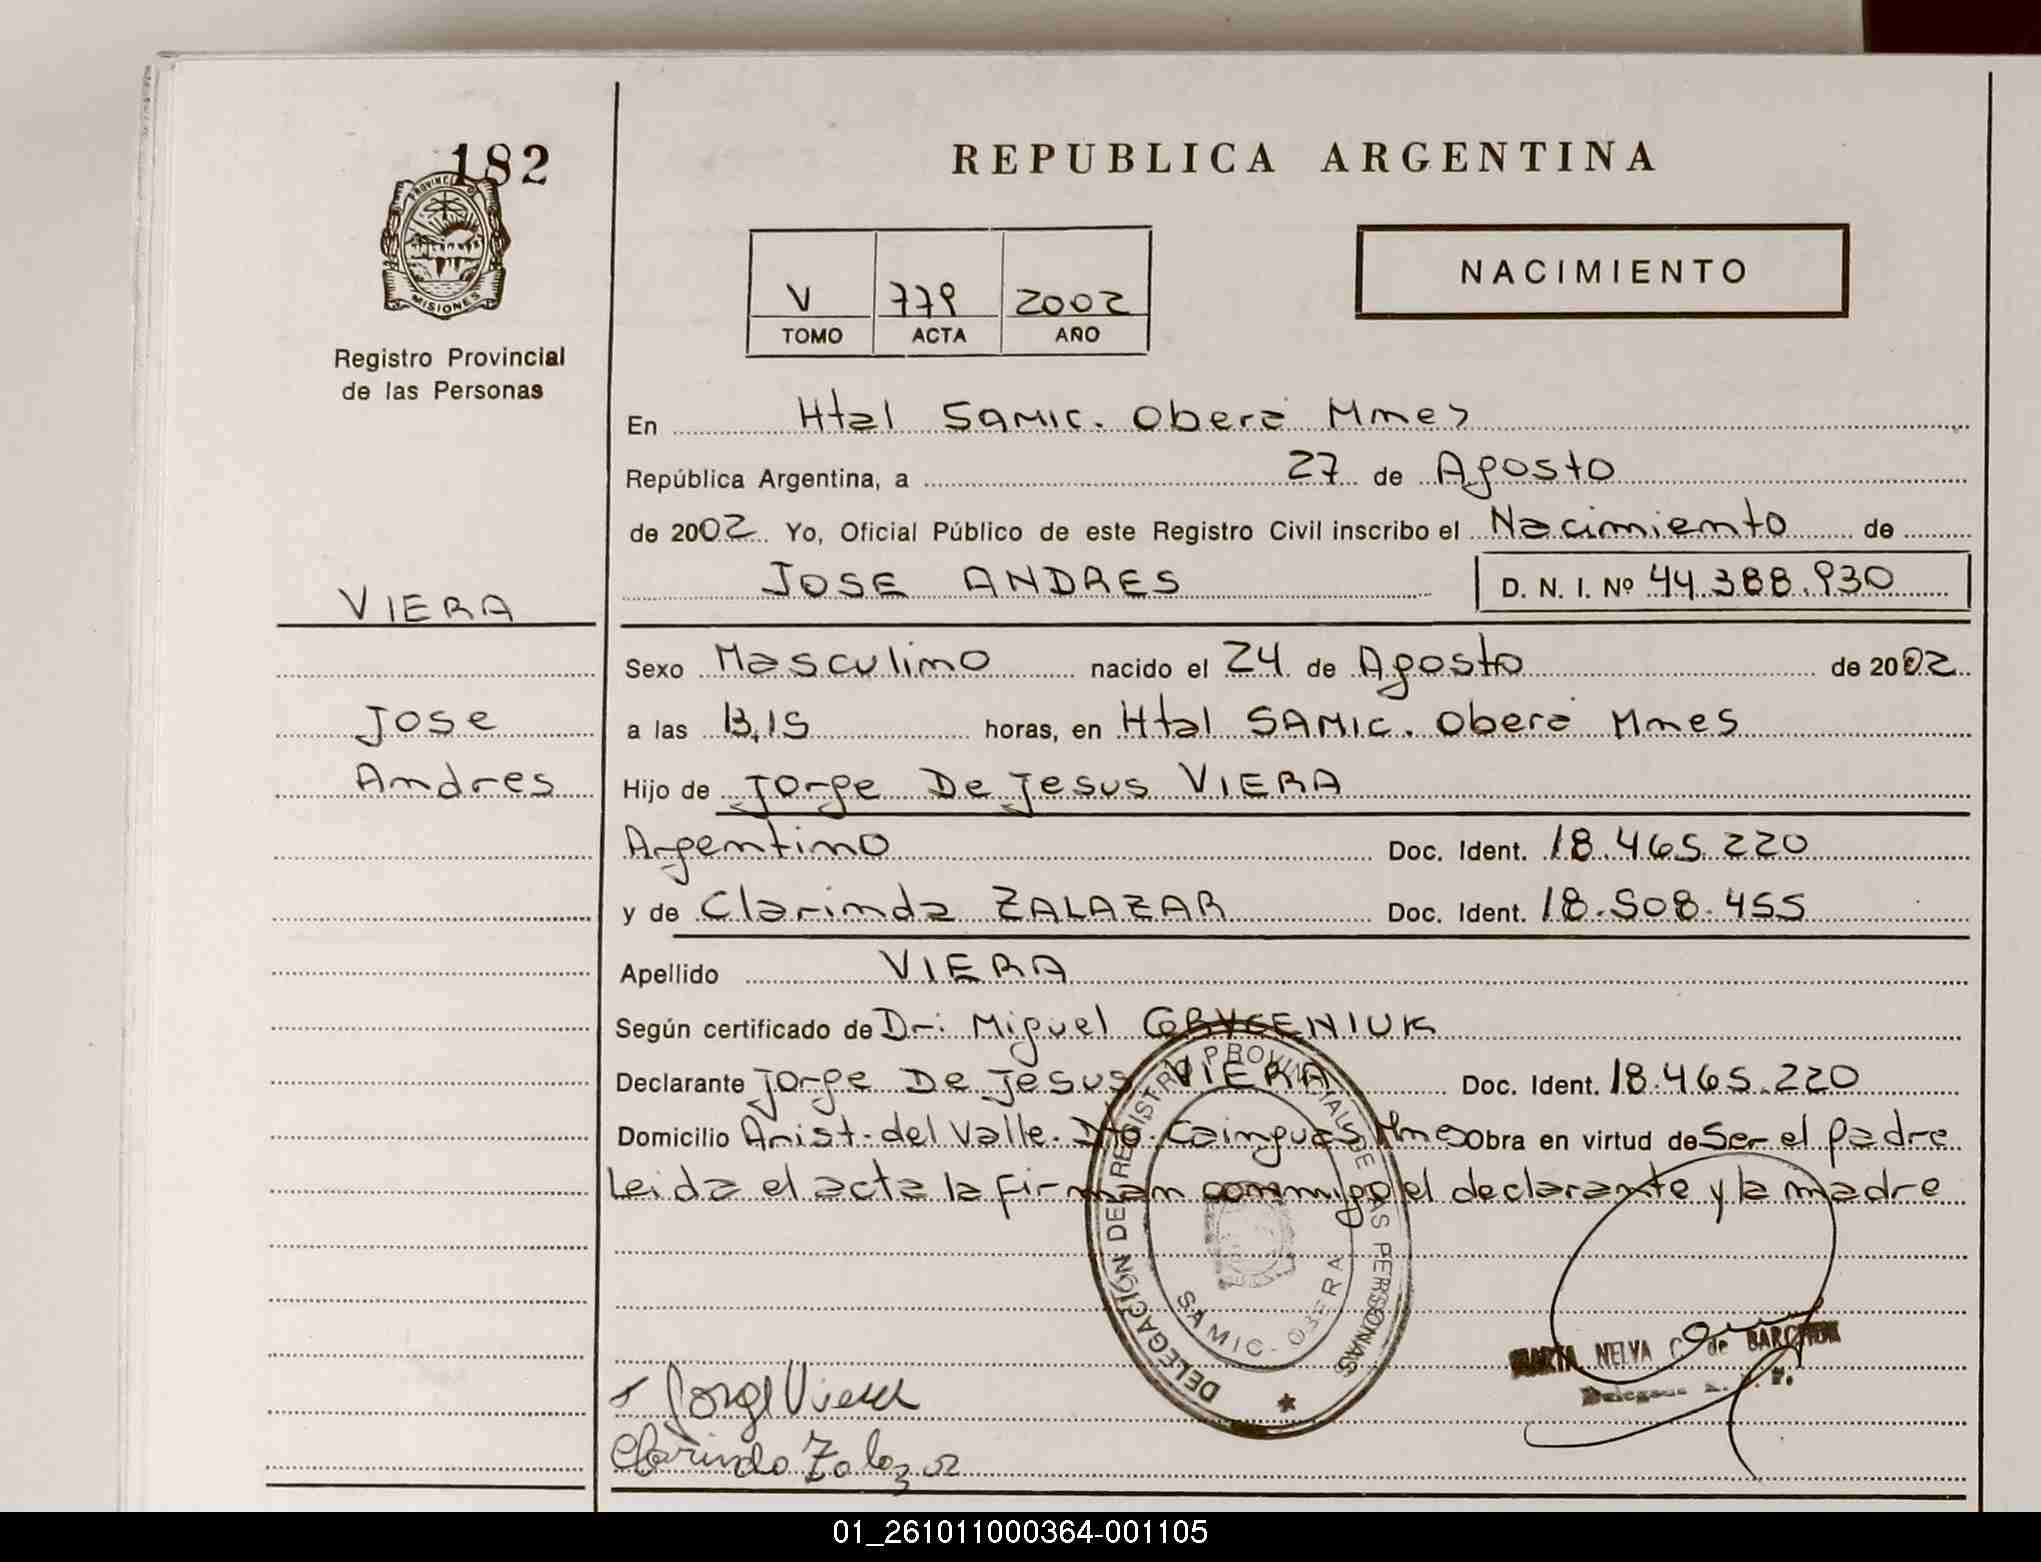 182
PROVINCIA D
MISIONES
Registro Provincial
de las Personas
VIERA
Jose
Andres
REPUBLICA ARGENTINA
NACIMIENTO
V 779 2002
TOMO ACTA AÑO
En Htal SAMIC. Oberá Mnes
República Argentina, a 27 de Agosto
de 2002 Yo, Oficial Público de este Registro Civil inscribo el Nacimiento de
JOSE ANDRES D. N. I. Nº 44.388.930
Sexo Masculino nacido el 24 de Agosto de 2002
a las 13,15 horas, en Htal SAMIC. Oberá Mnes
Hijo de Jorge De Jesus VIERA
Argentino Doc. Ident. 18.465.220
y de Clarinda ZALAZAR Doc. Ident. 18.508.455
Apellido VIERA
Según certificado de Dr: Miguel
Declarante Jorge De Jesus VIERA Doc. Ident. 18.465.220
Domicilio Arist. del Valle. Dto. Cainguas Mnes Obra en virtud de Ser el padre
Leida el acta la firman conmigo el declarante y la madre
DELEGACIÓN DEL REGISTRO PROVINCIAL DE LAS PERSONAS
SAMIC - OBERA
MARTA NELVA C. de
Jorge Viera
Clarinda Zalazar
01_261011000364-001105